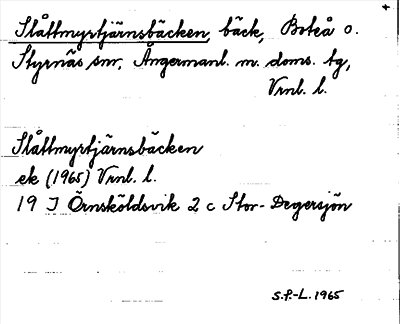 Slåttmyrtjärnsbäcken, bäck, Boteå o.
Styrnäs snr, Ångermanl. m. doms. tg,
Vrnl. l.
Slåttmyrtjärnsbäcken
ek (1965) Vrnl. l.
19 J Örnsköldsvik 2 c Stor-Degersjön
S.P.-L. 1965